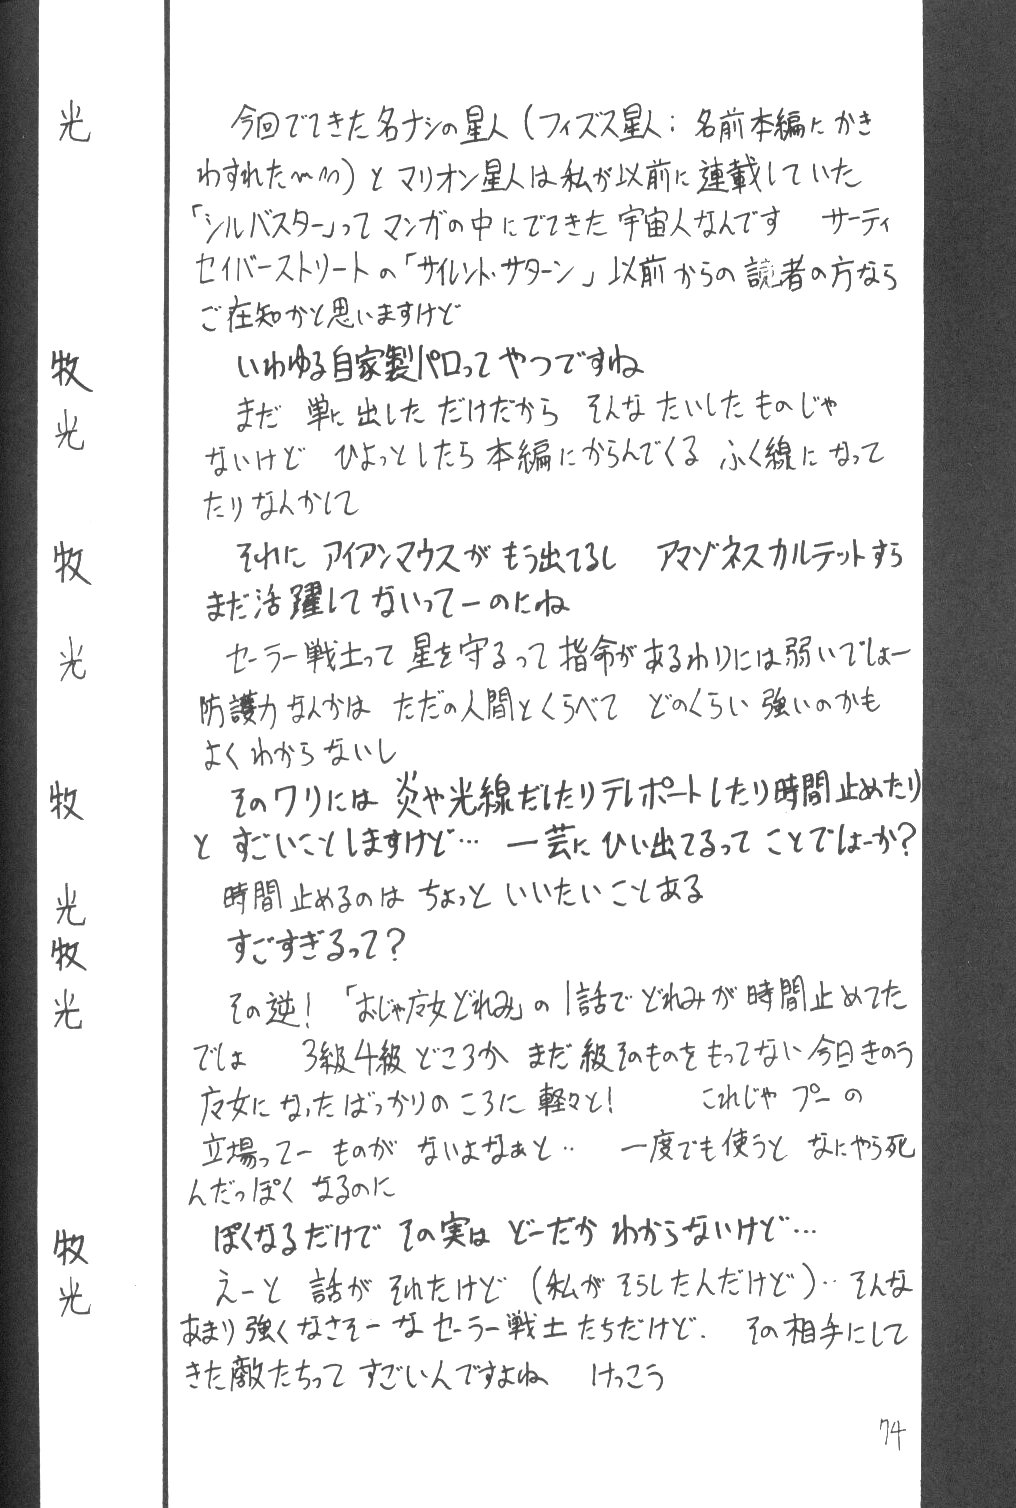 光　今回でてきた名ナシの星人（フィズス星人：名前本編にかき
わすれた〜^^）とマリオン星人は私が以前に連載していた
「シルバスター」ってマンガの中にでてきた宇宙人なんです　サーティ
セイバーストリートの「サイレント・サターン」以前からの読者の方なら
ご在知かと思いますけど
牧　いわゆる自家製パロってやつですね
光　まだ 単に出しただけだから そんなたいしたものじゃ
ないけど ひょっとしたら本編にからんでくる ふく線になって
たりなんかして
牧　それに アイアンマウスがもう出てるし アマゾネスカルテットすら
まだ活躍してないってーのにね
光　セーラー戦士って星を守るって指命があるわりには弱いでしょー
防護力なんかは ただの人間とくらべて どのくらい強いのかも
よくわからないし
牧　そのワリには炎や光線だしたりテレポートしたり時間止めたり
と すごいことしますけど… 一芸にひい出てるってことでしょーか？
光　時間止めるのは ちょっと いいたいことある
牧　すごすぎるって？
光　その逆！「おじゃ広女どれみ」の1話でどれみが時間止めてた
でしょ　3級4級どころか まだ級そのものをもってない今日きのう
広女になったばっかりのころに軽々と！　これじゃ プーの
立場ってー ものが ないよなぁと‥　一度でも使うと なにやら死
んだっぽくなるのに
牧　ぽくなるだけで その実は どーだか わからないけど…
光　えーと 話が それたけど（私がそらしたんだけど）‥そんな
あまり強くなさそーなセーラー戦士たちだけど. その相手にして
きた敵たちって すごいんですよね けっこう
74